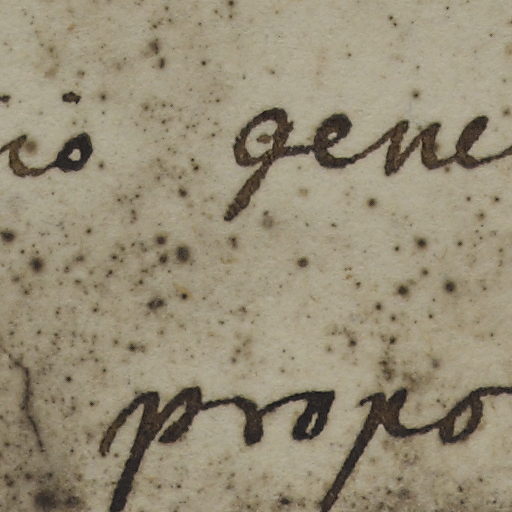 io gene
propo